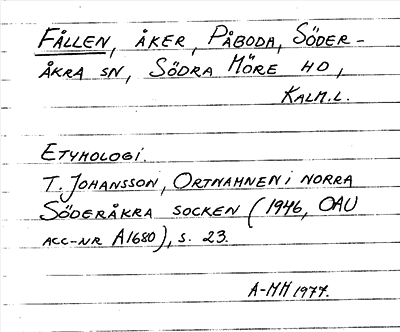 FÅLLEN, ÅKER, PÅBODA, SÖDER-
ÅKRA SN, SÖDRA MÖRE HD,
KALM.L.
ETYMOLOGI.
T. JOHANSSON, ORTNAMNEN i NORRA
SÖDERÅKRA SOCKEN (1946, OAU
ACC-NR A1680), S. 23.
A-MH 1977.